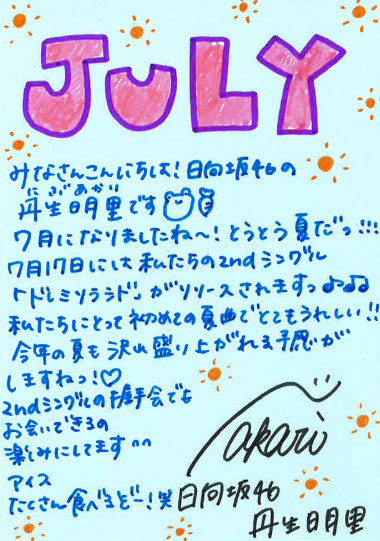 JULY
みなさんこんにちは！日向坂46の
にぶあかり
丹生明里です
7月になりましたね〜！とうとう夏だっ!!!
7月17日には私たちの2ndシングル
「ドレミソラシド」がリリースされますっ♪♫
私たちにとって初めての夏曲でとてもうれしい!!
今年の夏も沢山盛り上がれる予感が
しますねっ！♡
2ndシングルの握手会でも
お会いできるの
楽しみにしてます^^
アイス
たくさん食べるぞー！笑
akari
日向坂46
丹生明里